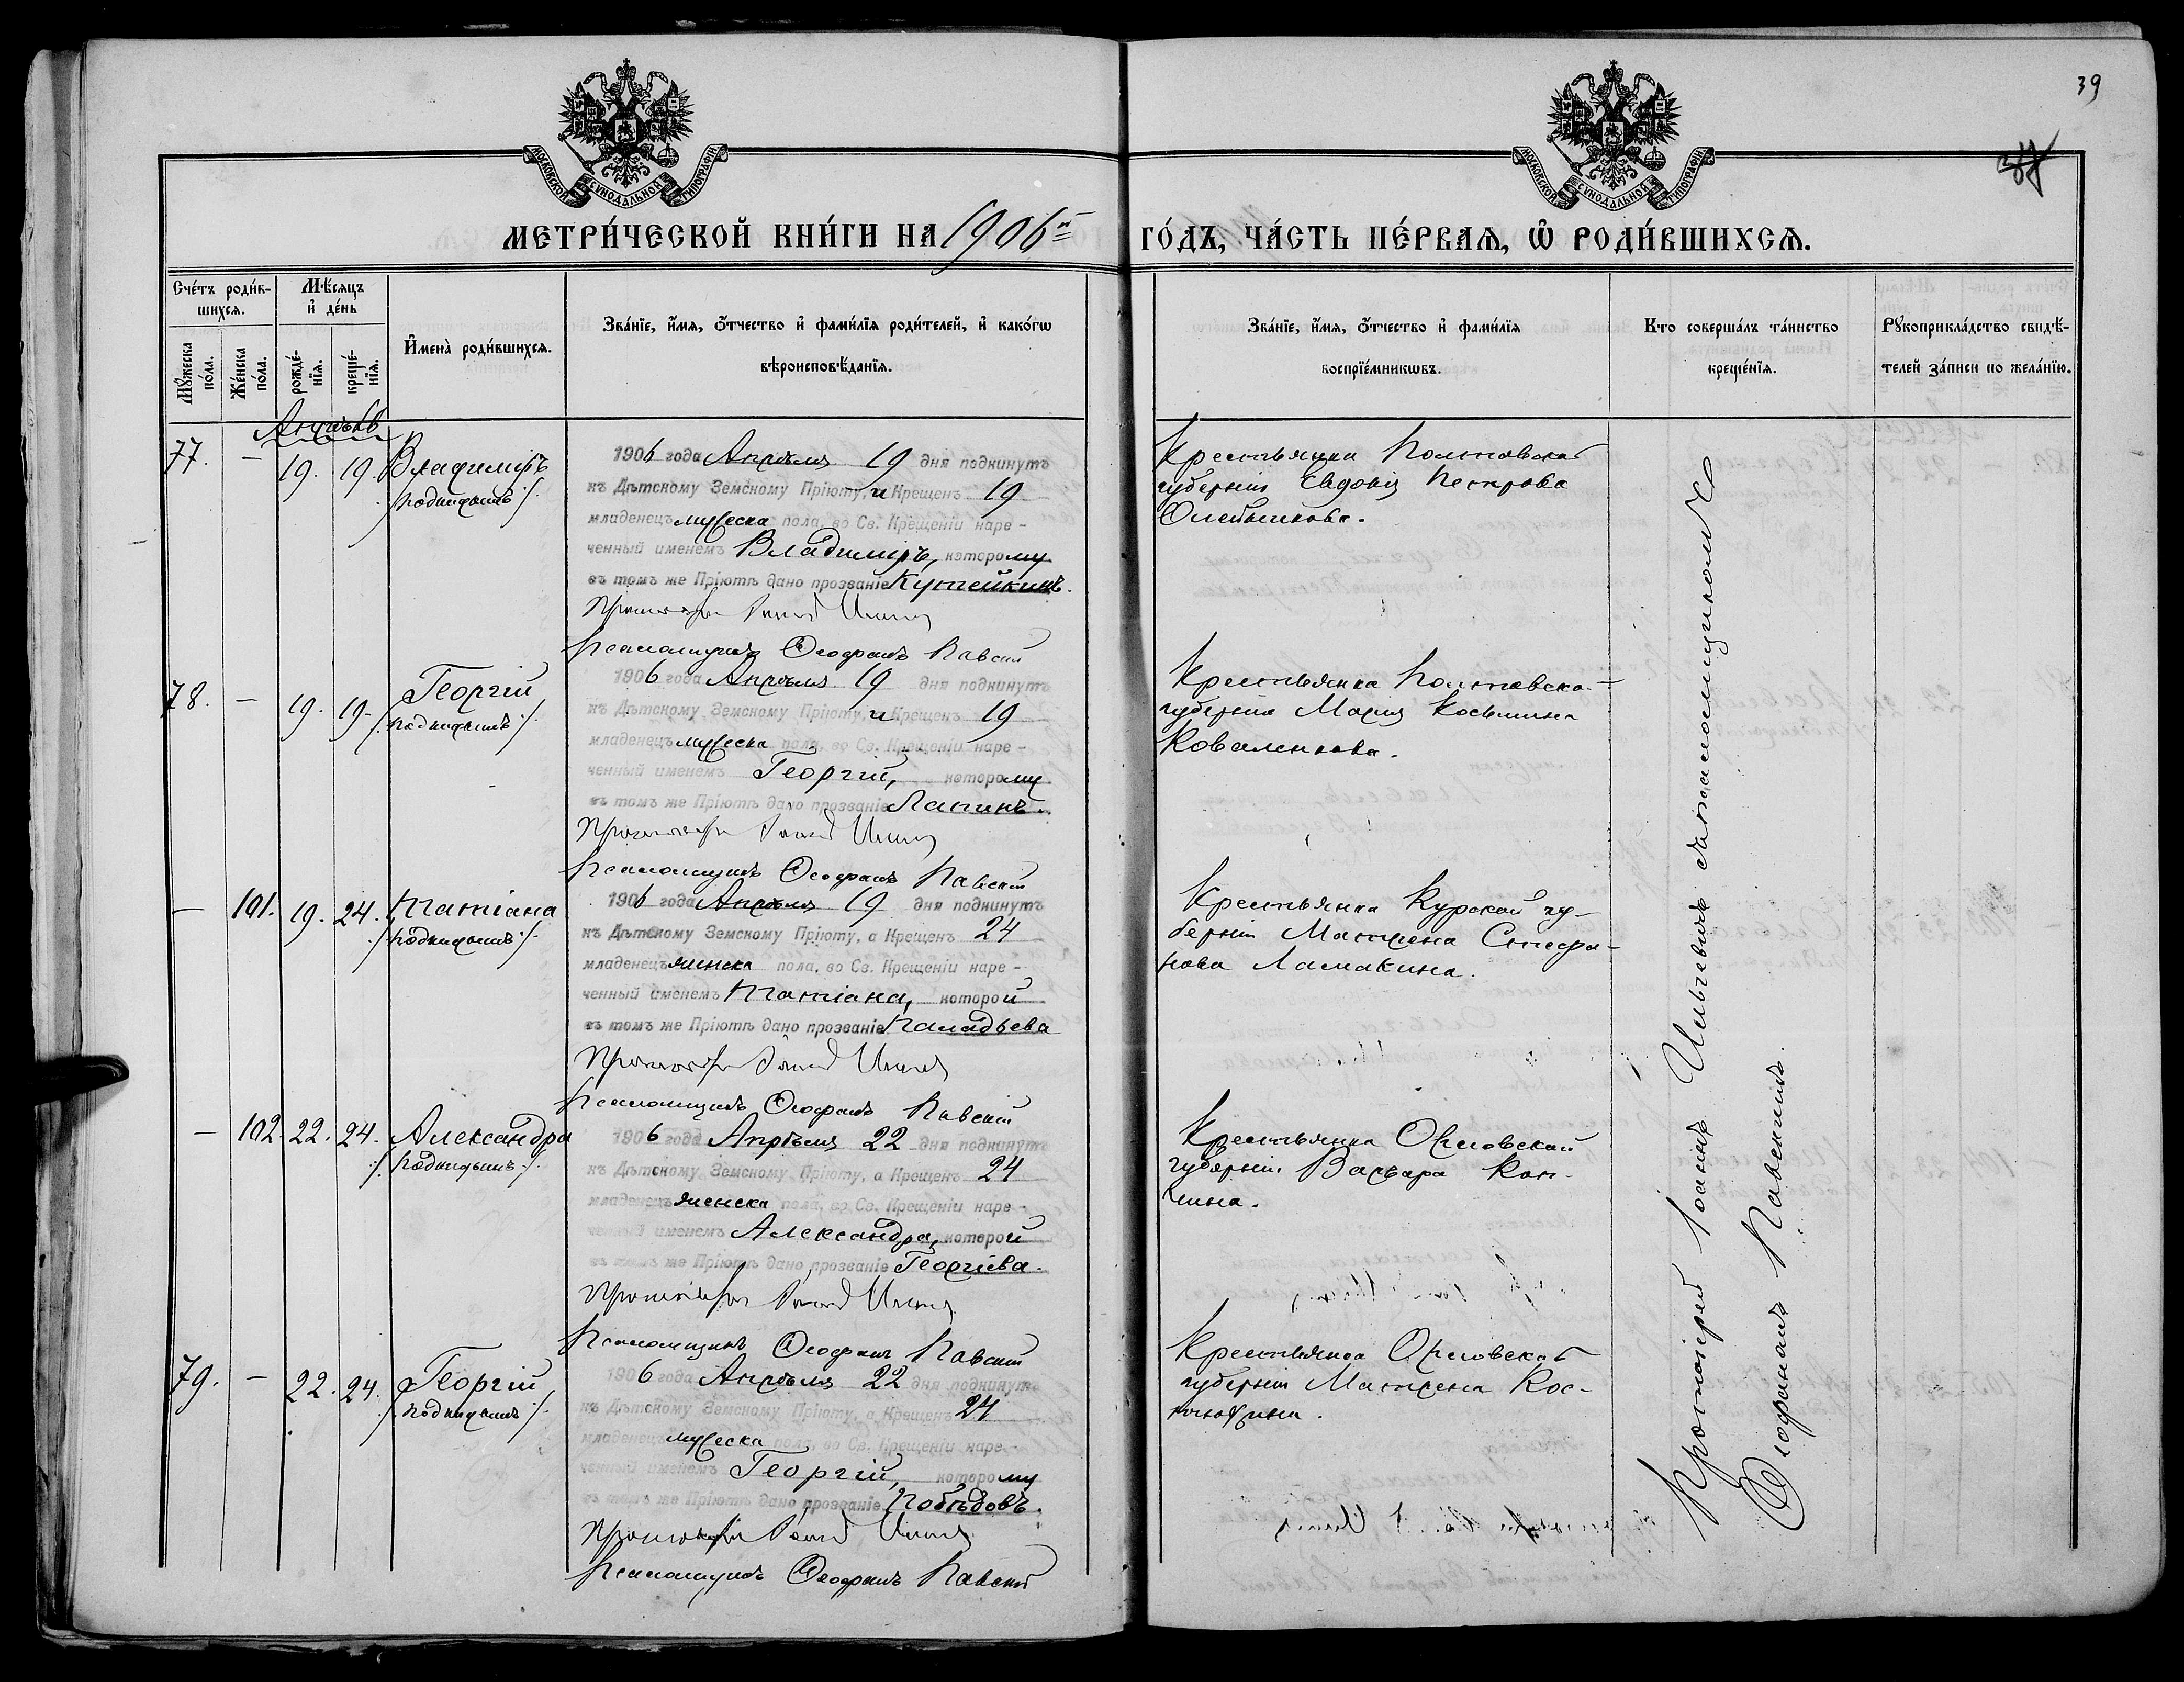 39
МОСКОВСКОЙ СУНОДАЛЬНОЙ ТИПОГРАФІИ
МОСКОВСКОЙ СУНОДАЛЬНОЙ ТИПОГРАФІИ
МЕТРИ́ЧЕСКОЙ КНИ́ГИ НА 1906й
ГО́ДЪ, ЧА́СТЬ ПЕ́РВАѦ, Ѽ РОДИ́ВШИХСѦ.
Сче́тъ роди́вшихсѧ.
Мѣ́сѧцъ и҆ де́нь
Мꙋ́жеска по́ла.
Же́нска по́ла.
рожде́нїѧ.
креще́нїѧ.
И҆мена̀ роди́вшихсѧ.
Зва́нїе, и҆́мѧ, ѻ҆́тчество и҆ фами́лїѧ роди́телей, и҆ како́гѡ
вѣроисповѣ́данїѧ.
Зва́нїе, и҆́мѧ, ѻ҆́тчество и҆ фами́лїѧ
воспрїе́мникѡвъ.
Кто̀ соверша́лъ та́инство
креще́нїѧ.
Рꙋкоприкла́дство свидѣ́-
телей за́писи по жела́нїю.
Апрѣль
77. – 19. 19. Владиміръ
/:подкидышъ:/.
1906 года Апрѣля 19 дня подкинутъ
къ Дѣтскому Земскому Пріюту, и Крещенъ 19
младенецъ мужеска пола, во Св. Крещеніи наре-
ченный именемъ Владиміръ, которому
въ томъ же Пріютѣ дано прозваніе Кутейкинъ.
Протоіерей Іоаннъ
Псаломщикъ Ѳеофанъ Павскій
Крестьянка Полтавской
губерніи Евдокія Петрова
78. – 19. 19. Георгій
/:подкидышъ:/.
1906 года Апрѣля 19 дня подкинутъ
къ Дѣтскому Земскому Пріюту, и Крещенъ 19
младенецъ мужеска пола, во Св. Крещеніи наре-
ченный именемъ Георгій, которому
въ томъ же Пріютѣ дано прозваніе Лапинъ.
Протоіерей Іоаннъ
Псаломщикъ Ѳеофанъ Павскій
Крестьянка Полтавской
губерніи Марія Косьмина
Коваленкова.
– 101. 19. 24. Татіана
/:подкидышъ:/.
1906 года Апрѣля 19 дня подкинутъ
къ Дѣтскому Земскому Пріюту, а Крещенъ 24
младенецъ женска пола, во Св. Крещеніи наре-
ченный именемъ Татіана, которой
въ томъ же Пріютѣ дано прозваніе Паладьева
Протоіерей Іоаннъ
Псаломщикъ Ѳеофанъ Павскій
Крестьянка Курской гу-
берніи Матрена Стефа-
нова Ламакина.
– 102. 22. 24. Александра
/:подкидышъ:/.
1906 года Апрѣля 22 дня подкинутъ
къ Дѣтскому Земскому Пріюту, а Крещенъ 24
младенецъ женска пола, во Св. Крещеніи наре-
ченный именемъ Александра, которой
въ томъ же Пріютѣ дано прозваніе Георгіева.
Протоіерей Іоаннъ
Псаломщикъ Ѳеофанъ Павскій
Крестьянка Орловской
губерніи Варвара Кон-
79. – 22. 24. Георгій
/:подкидышъ:/.
1906 года Апрѣля 22 дня подкинутъ
къ Дѣтскому Земскому Пріюту, а Крещенъ 24
младенецъ мужеска пола, во Св. Крещеніи наре-
ченный именемъ Георгій, которому
въ томъ же Пріютѣ дано прозваніе Побѣдовъ.
Протоіерей Іоаннъ
Псаломщикъ Ѳеофанъ Павскій
Крестьянка Орловской
губерніи Матрена Кос-
Протоіерей Іоаннъ съ псаломщикомъ
Ѳеофаномъ Павскимъ.